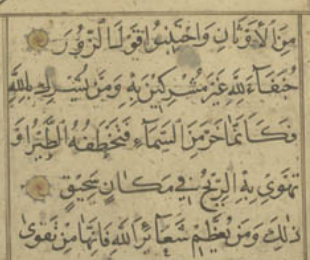 مِنَ الْأَوْثَانِ وَاجْتَنِبُوا قَوْلَ الزُّورِ
حُنَفَاءَ لِلَّهِ غَيْرَ مُشْرِكِينَ بِهِ وَمَنْ يُشْرِكْ بِاللَّهِ
فَكَأَنَّمَا خَرَّ مِنَ السَّمَاءِ فَتَخْطَفُهُ الطَّيْرُ أَوْ
تَهْوِي بِهِ الرِّيحُ فِي مَكَانٍ سَحِيقٍ
ذَٰلِكَ وَمَنْ يُعَظِّمْ شَعَائِرَ اللَّهِ فَإِنَّهَا مِنْ تَقْوَى